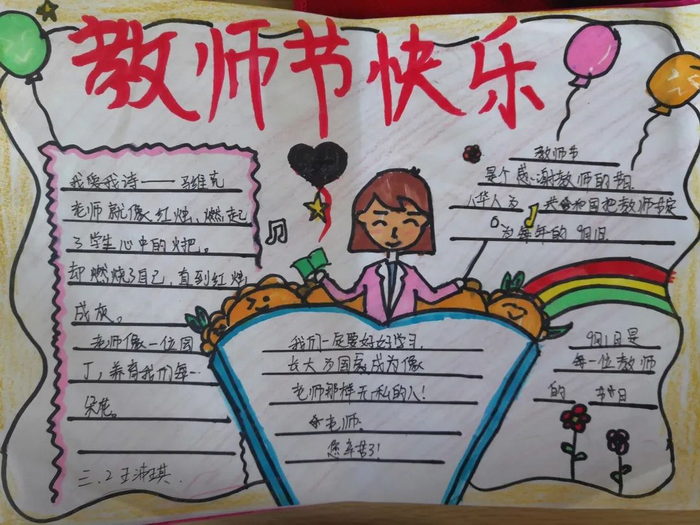 教师节快乐
我爱我诗——马维克
老师就像红烛，燃起
了学生心中的火把。
却燃烧了自己，直到红烛
成灰。
老师像一位园
丁，养育我们每一
朵花。
三.2王沛琪
我们一定要好好学习，
长大为国家成为像
老师那样无私的人！
老师，
您辛苦了！
教师节
是个感谢教师的节日
人华人为 共合和国把教师节定
为每年的9月1日
9月1日是
每一位教师
的 节日